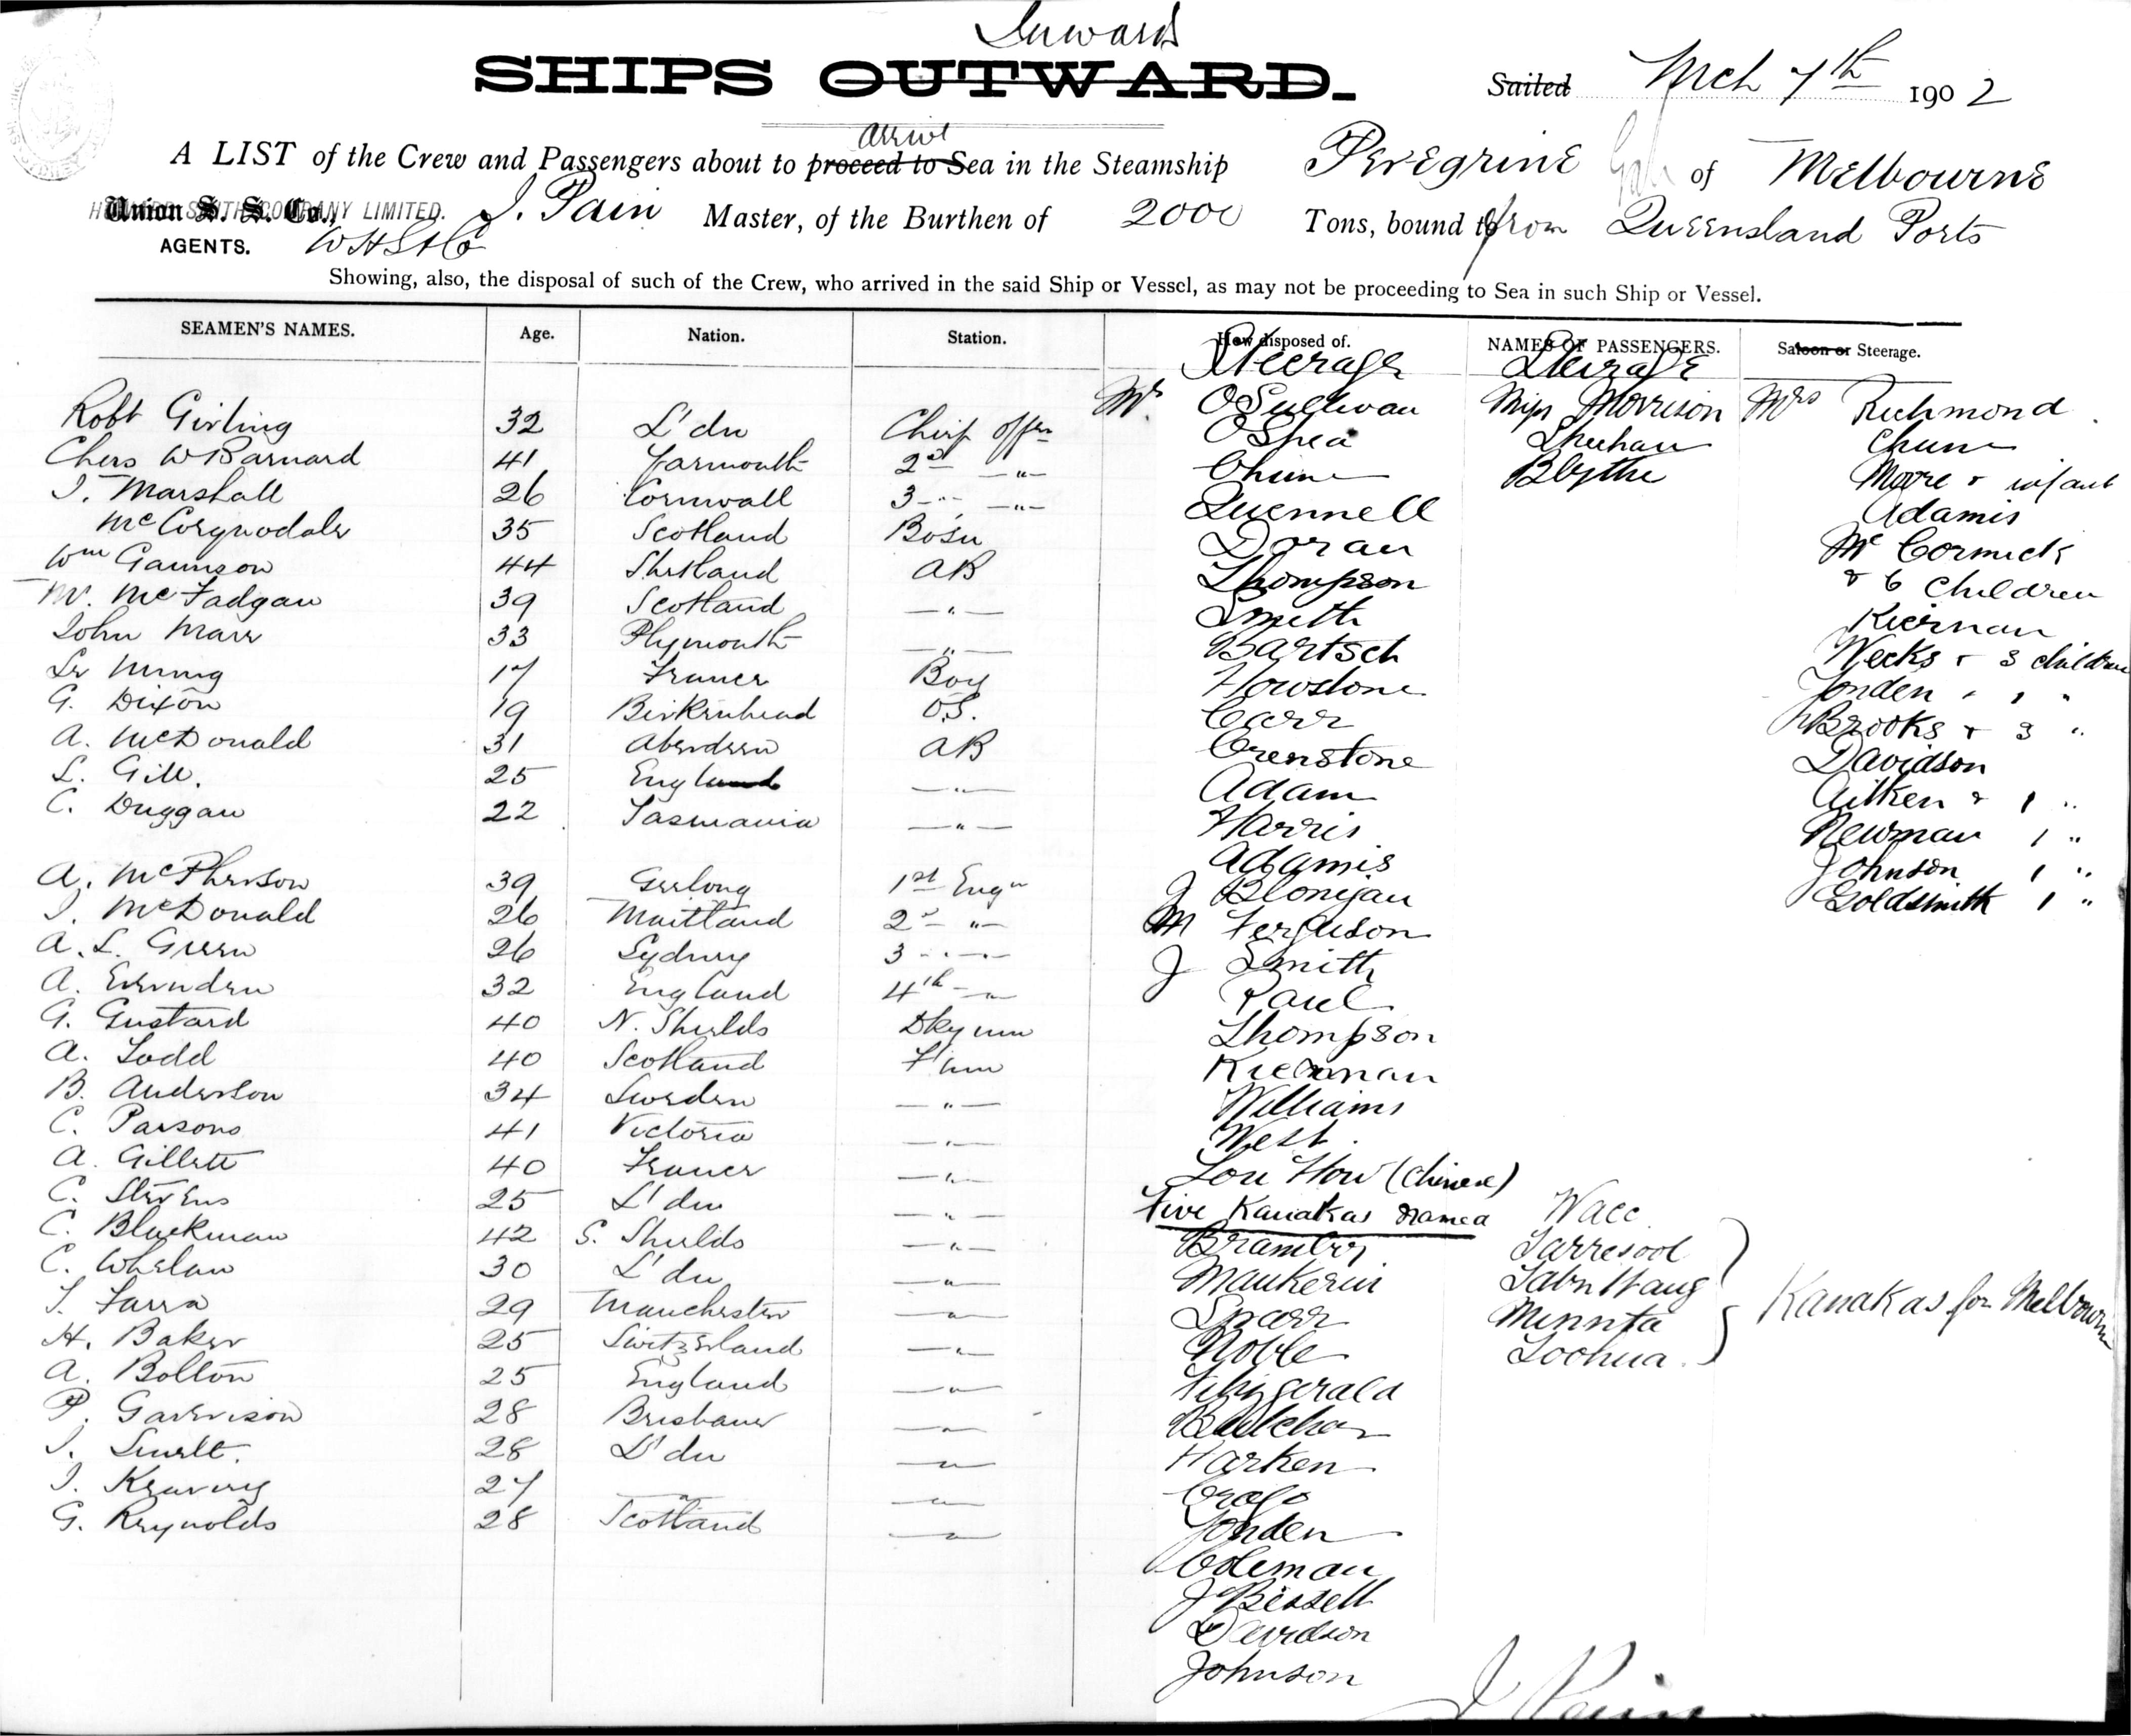 Inwards
SHIPS OUTWARD.
Sailed Mch 7th 1902
arrive
A LIST of the Crew and Passengers about to proceed to Sea in the Steamship Peregrine of Melbourne
Union S. S. Co., HOWARD SMITH COMPANY LIMITED. J. Pain Master, of the Burthen of 2000 Tons, bound to from Queensland Ports
AGENTS. W H S & Co
Showing, also, the disposal of such of the Crew, who arrived in the said Ship or Vessel, as may not be proceeding to Sea in such Ship or Vessel.
SEAMEN'S NAMES. Age. Nation. Station. How disposed of. NAMES OF PASSENGERS. Saloon or Steerage.
Steerage Steerage
Robt Girling 32 L'dn Chief Offr
Chas W Barnard 41 Yarmouth 2nd "
J. Marshall 26 Cornwall 3 " "
McCorquodale 35 Scotland Bosn
Wm Gaunson 44 Shetland AB
M. McFadgan 39 Scotland "
John Marr 33 Plymouth "
17 France Boy
G. Dixon 19 Birkenhead O.S.
A. McDonald 31 Aberdeen AB
L. Gill. 25 England "
C. Duggan 22 Tasmania "
A. McPherson 39 Geelong 1st Engr
J. McDonald 26 Maitland 2nd "
A. L. Green 26 Sydney 3 "
A. Evenden 32 England 4th "
G. Gustard 40 N. Shields Dkymn
A. Todd 40 Scotland F'mn
B. Anderson 34 Sweden "
C. Parsons 41 Victoria "
A. Gillett 40 France "
C. Stevens 25 L'dn "
C. Blackman 42 S. Shields "
C. Whelan 30 L'dn "
T. Farra 29 Manchester "
H. Baker 25 Switzerland "
A. Bolton 25 England "
P. Garrison 28 Brisbane "
J. 28 L'dn "
J. 27 " "
G. Reynolds 28 Scotland "
Mr O'Sullivan
O'Shea
Chune
Quennell
Doran
Thompson
Smith
Bartsch
Howstone
Carr
Orenstone
Adam
Harris
Adamis
J Blonigau
M Ferguson
J Smith
Paul
Thompson
Kiernan
Williams
West.
Lou How (Chinese)
Five Kanakas named
Brambry
Maukerin
Sparr
Noble
Fitzgerald
Harken
Yonden
Coleman
J Bissell
Davidson
Johnson
Miss Morrison
Sheehan
Blythe
Wace
Tarresool
Minnta
Loohua.
Kanakas for Melbourne
Mrs Richmond
Chune
Moore & infant
Adamis
McCormick
& 6 Children
Kiernan
Weeks & 3 children
Yonden " 1 "
Brooks & 3 "
Davidson
Aitken & 1 "
Newman 1 "
Johnson 1 "
Goldsmith 1 "
J Pain